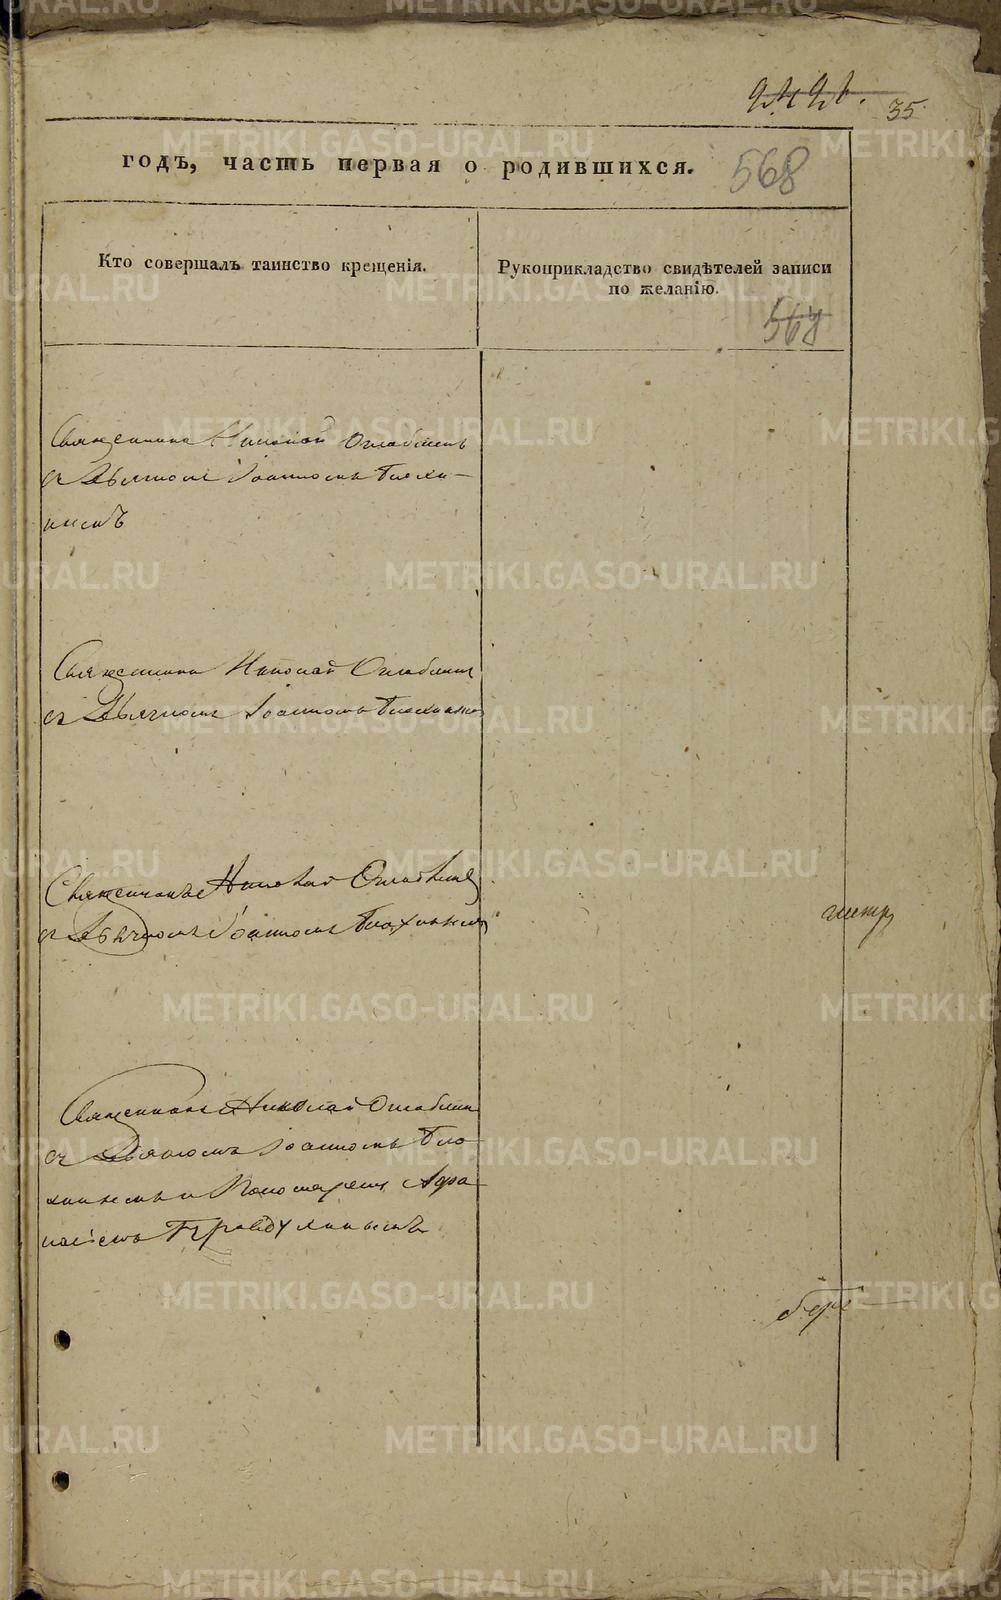 35.
годъ, часть первая о родившихся. 568
Кто совершалъ таинство крещенія.
Рукоприкладство свидѣтелей записи
по желанію.
568
Священникъ Николай Оглоблинъ
съ Дьячкомъ Іоанномъ Плохи-
нымъ
Священникъ Николай Оглоблинъ
съ Дьячкомъ Іоанномъ Плохинымъ
Священникъ Николай Оглоблинъ
съ Дьячкомъ Іоанномъ Плохинымъ
Священникъ Николай Оглоблинъ
съ Дьячкомъ Іоанномъ Пло
хинымъ и Пономаремъ Афа
насіемъ
METRIKI.GASO-URAL.RU